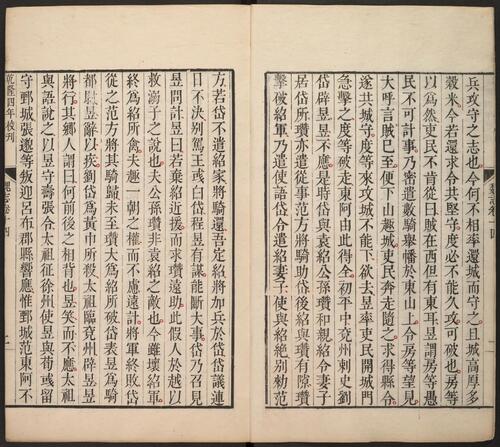 兵攻守之志也今何不相率還城而守之且城高厚多
穀米今若還求令共堅守度必不能久攻可破也房等
以爲然吏民不肯從曰賊在西但有東耳昱謂房等愚
民不可計事乃密遣數騎舉幡於東山上令房等望見
大呼言賊已至便下山趣城吏民奔走隨之求得縣令
遂共城守度等來攻城不能下欲去昱率吏民開城門
急擊之度等破走東阿由此得全初平中兗州刺史劉
岱辟昱昱不應是時岱與袁紹公孫瓚和親紹令妻子
居岱所瓚亦遣從事范方將騎助岱後紹與瓚有隙瓚
擊破紹軍乃遣使語岱令遣紹妻子使與紹絕別勅范
方若岱不遣紹家將騎還吾定紹將加兵於岱岱議連
日不決別駕王彧白岱程昱有謀能斷大事岱乃召見
昱問計昱曰若棄紹近援而求瓚遠助此假人於越以
救溺子之說也夫公孫瓚非袁紹之敵也今雖壞紹軍
終爲紹所禽夫趣一朝之權而不慮遠計將軍終敗岱
從之范方將其騎歸未至瓚大爲紹所破岱表昱爲騎
都尉昱辭以疾劉岱爲黃巾所殺太祖臨兗州辟昱昱
將行其鄉人謂曰何前後之相背也昱笑而不應太祖
與語說之以昱守壽張令太祖征徐州使昱與荀彧留
守鄄城張邈等叛迎呂布郡縣響應惟鄄城范東阿不
乾隆四年校刊
魏志卷十四